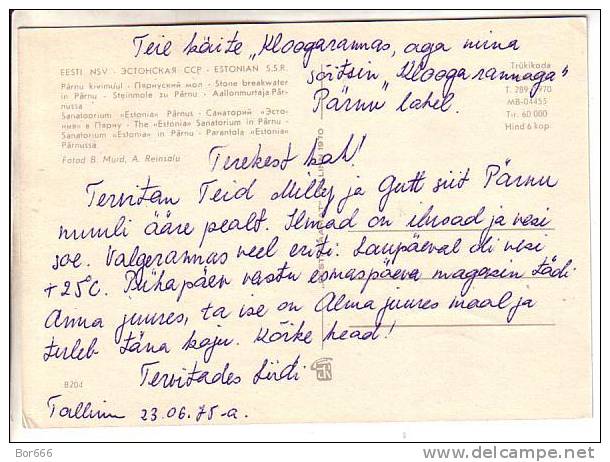 Teie käite „Kloogarannas, aga mina
sõitsin „Kloogarannaga”
Pärnu lahel.
EESTI NSV · ЭСТОНСКАЯ ССР · ESTONIAN S.S.R.
Pärnu kivimuul · Пярнуский мол · Stone breakwater
in Pärnu · Steinmole zu Pärnu · Aallonmurtaja Pär-
nussa
Sanatoorium «Estonia» Pärnus · Санаторий «Эсто-
ния» в Пярну · The «Estonia» Sanatorium in Pärnu ·
Sanatorium «Estonia» in Pärnu · Parantola «Estonia»
Pärnussa
Fotod B. Muid, A. Reinsalu
Trükikoda
T. 289 1970
MB-04455
Tir. 60 000
Hind 6 kop.
Terekest ka!
Tervitan Teid Milly ja Gutt siit Pärnu
muuli ääre pealt. Ilmad on ilusad ja vesi
soe. Valgerannas veel eriti. Laupäeval oli vesi
+25°C. Pühapäev vastu esmaspäeva magasin tädi
Anna juures, ta ise on Alma juures maal ja
tuleb täna koju. Kõike head!
Tervitades
Tallinn 23.06.75-a.
8204
Bor666
www.delcampe.net